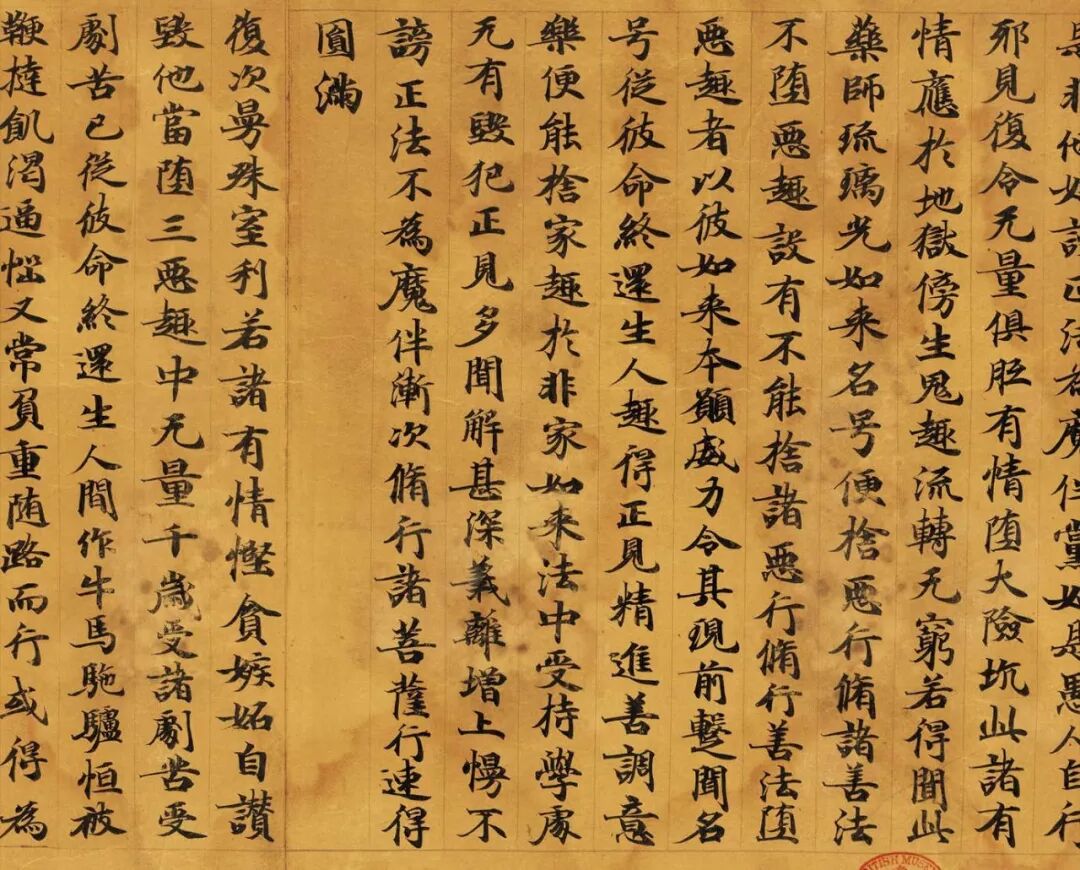 是非他謗正法為魔伴黨如是愚人自行
邪見復令无量俱胝有情堕大險坑此諸有
情應於地獄傍生鬼趣流轉无窮若得聞此
藥師琉璃光如来名号便捨惡行脩諸善法
不堕惡趣設有不能捨諸惡行脩行善法堕
惡趣者以彼如来本願威力令其現前蹔聞名
号從彼命終還生人趣得正見精進善調意
樂便能捨家趣於非家如来法中受持學處
无有毀犯正見多聞解甚深義離增上慢不
謗正法不為魔伴漸次脩行諸菩薩行速得
圓滿
復次曼殊室利若諸有情慳貪嫉妬自讃
毀他當堕三惡趣中无量千歲受諸劇苦受
劇苦已從彼命終還生人間作牛馬駞驢恒被
鞭撻飢渴逼惱又常負重随路而行或得為